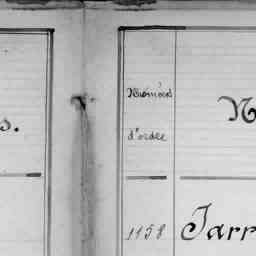 s.
Numéros
d'ordre
N
1158 Jarr